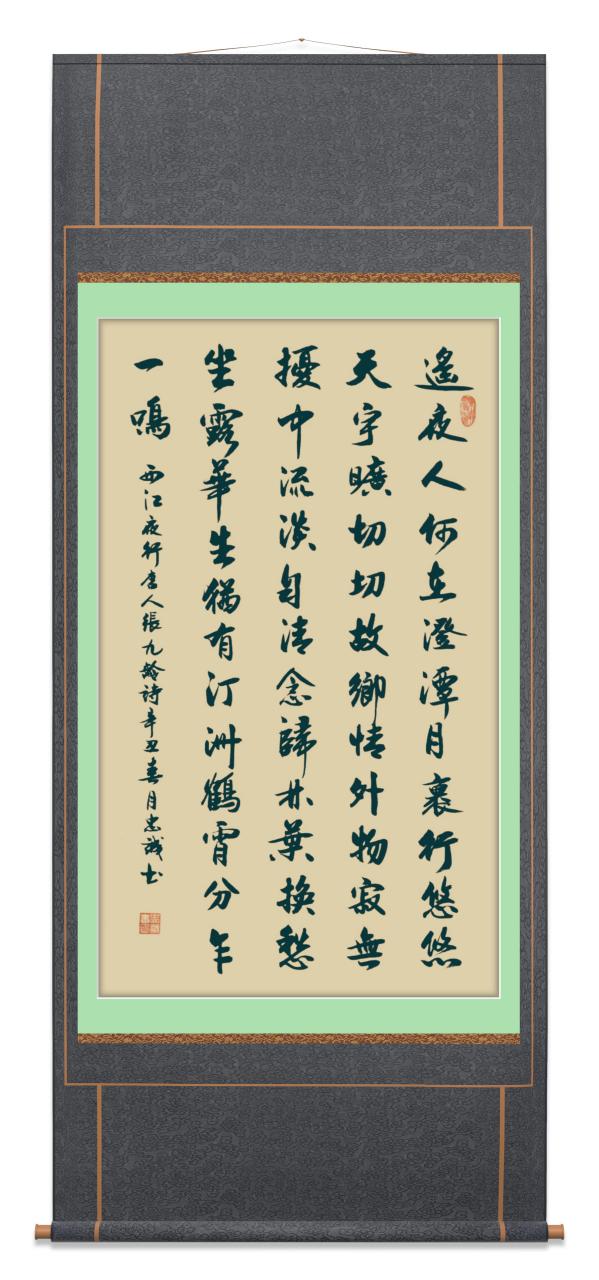 遙夜人何在澄潭月裏行悠悠
天宇曠切切故鄉情外物寂無
擾中流淡自清念歸林葉換愁
坐露華生猶有汀洲鶴宵分乍
一鳴
西江夜行唐人張九齡詩辛丑春月忠誠书